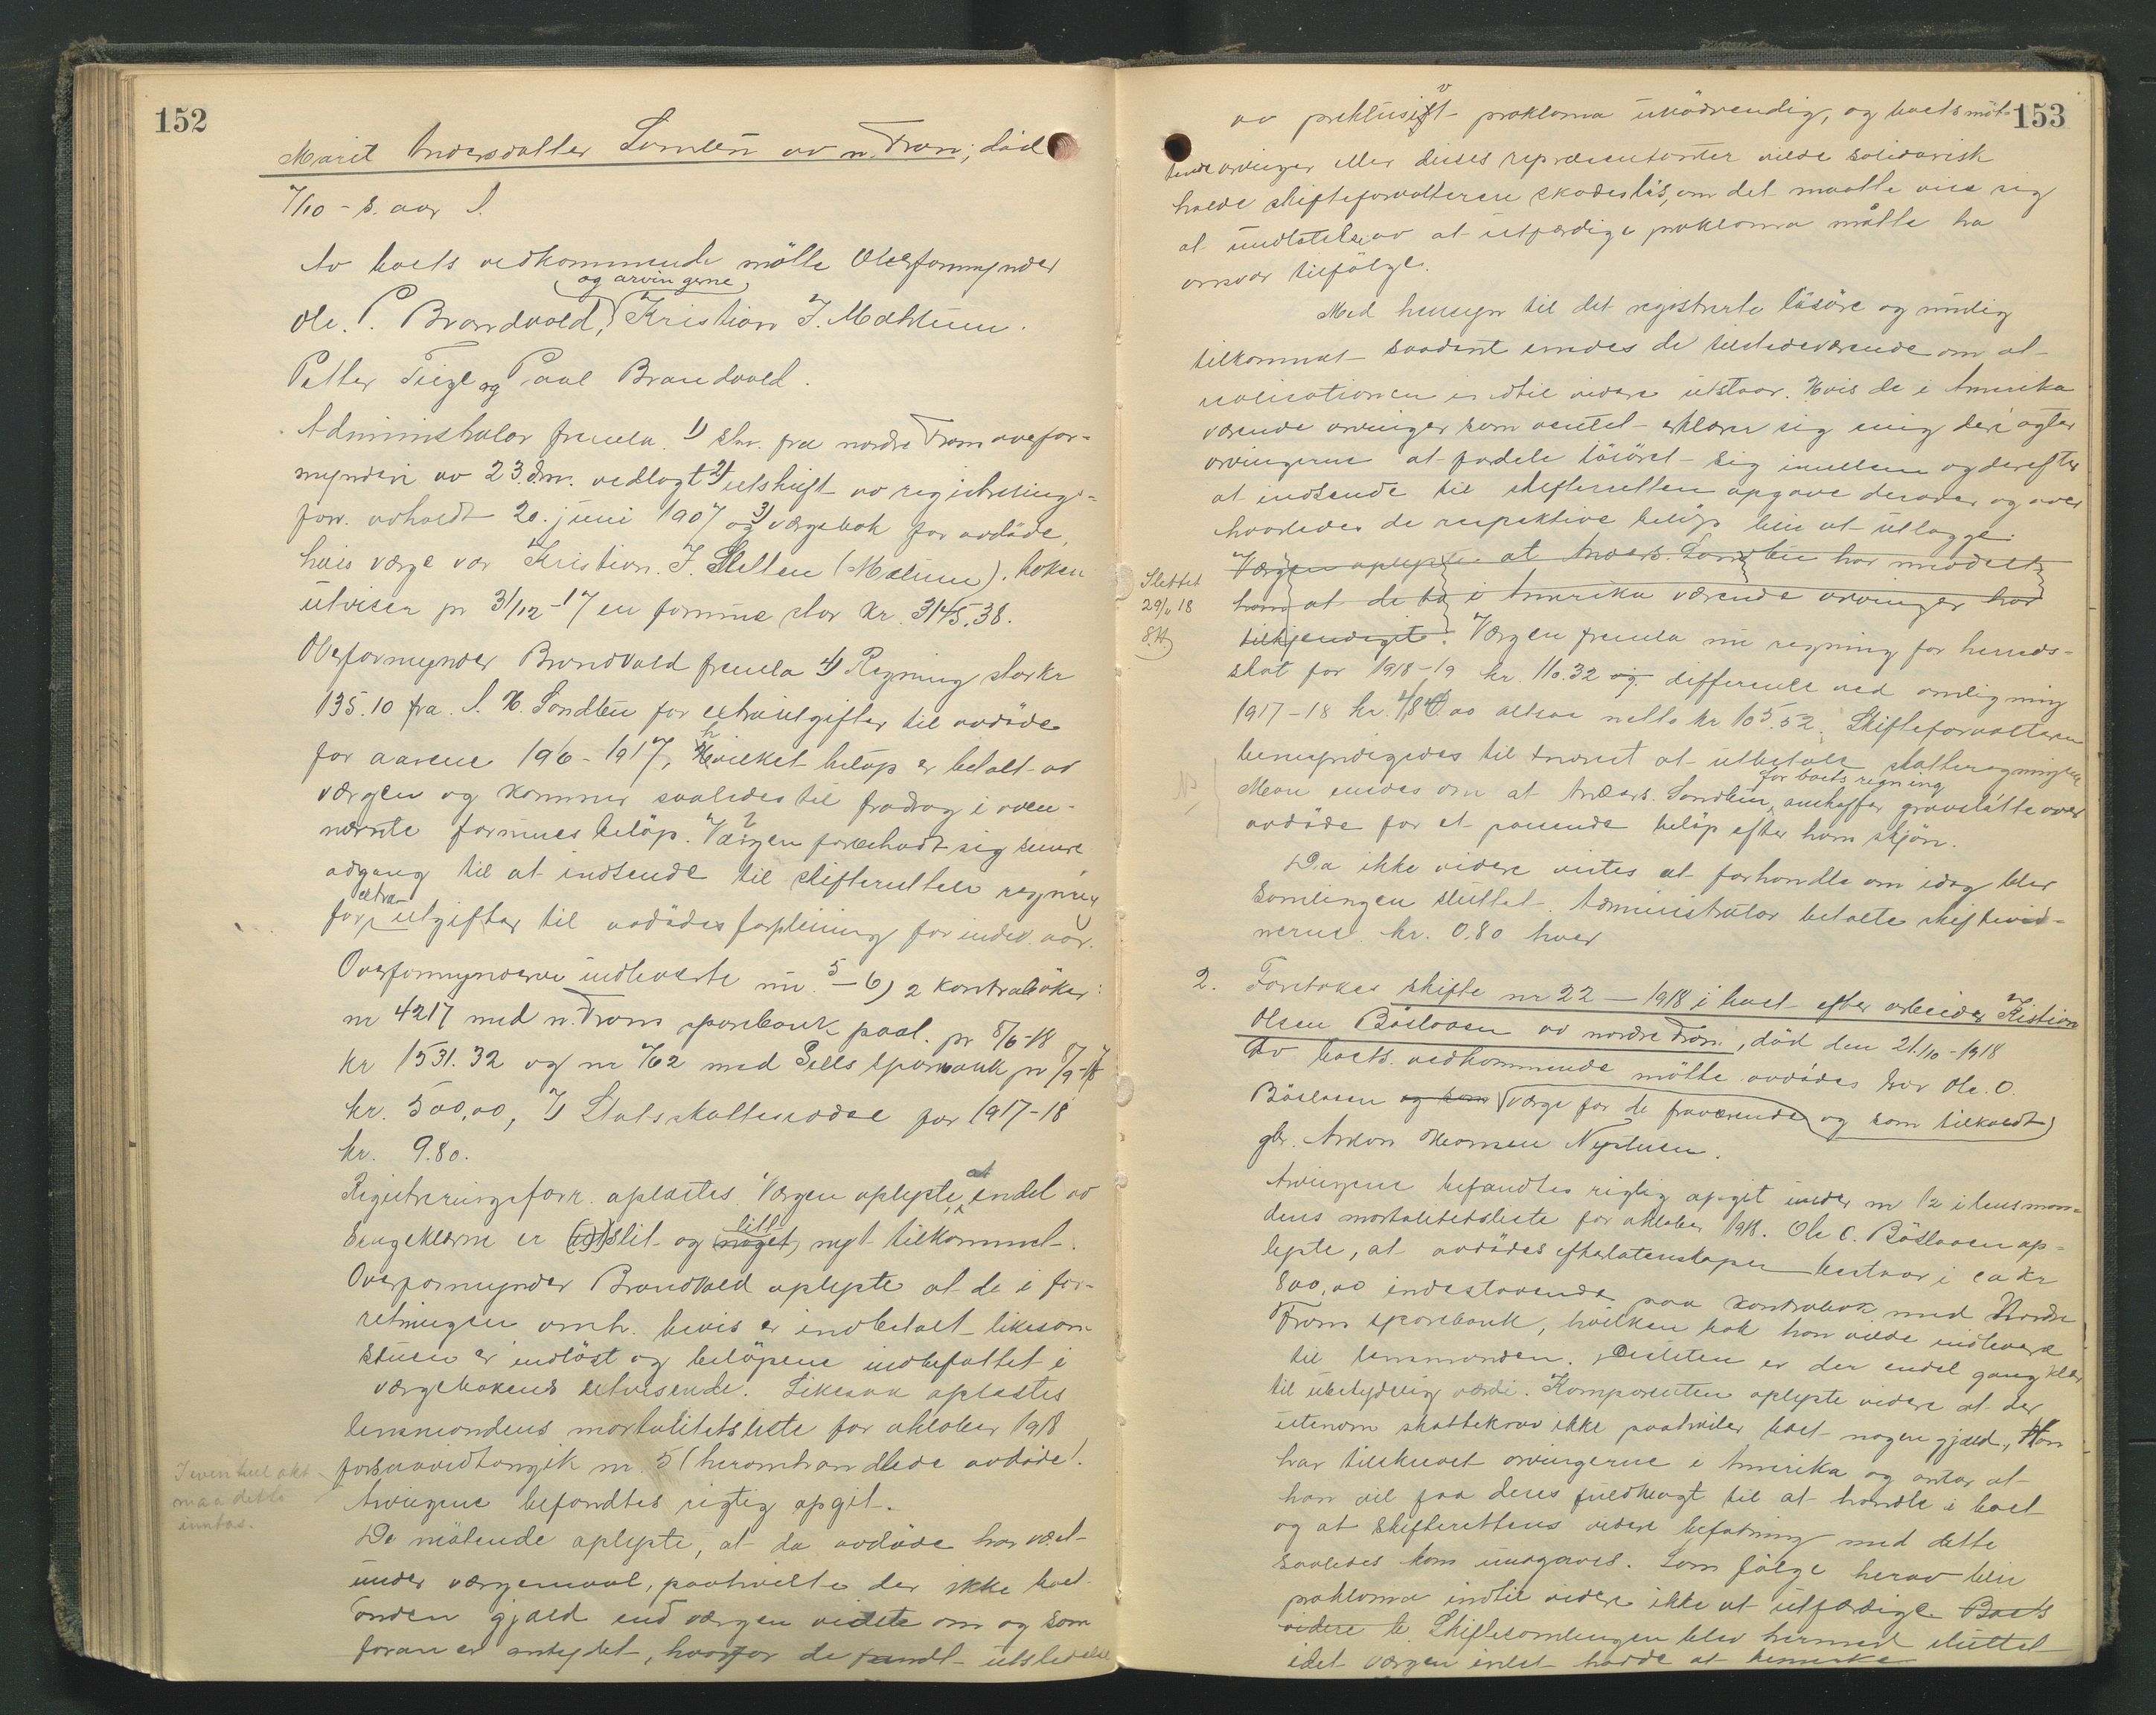 152
Marit Andersdatter Sandlen av n. Fron; död
7/10 - s. aar l.
Av boets vedkommende mötte Overformynder
og arvingerne
Ole. P. Brandvold, Kristian J. Mæhlum.
Petter Tiege og Paal Brandvold.
Administrator fremla. 1) skr. fra nordre Fron overfor-
mynderi av 23. dm. vedlagt 2) utskrift av registrerings-
forr. avholdt 20. juni 1907 og 3) værgebok for avdöde,
hvis værge var Kristian. J. Sletten (Mælum). boken
utviser pr 31/12-17 en formue stor kr. 3145.38.
Overformynder Brandvold fremla 4) Regning stor kr
135.10 fra. A. H. Sandlen for extrautgifter til avdöde
for aarene 196 - 1917, hvilket belöp er betalt av
værgen og kommer saaledes til fradrag i oven-
nævnte formuesbelöp. Værgen forbeholdt sig senere
adgang til at indsende til skifteretten regning
extra
for utgifter til avdödes forpleining for indev. aar.
Overformynderne indleverte nu. 5 - 6) 2 kontraböker:
nr 4217 med n. Frons sparebank paal. pr 8/6-18
kr 1531.32 og nr 762 med Sells sparebank pr 8/9-17
kr. 500,00, 7) Statsskatteseddel for 1917-18
kr. 9.80.
Registreringsforr. oplæstes. Værgen oplyste, at endel av
sengeklærne er utslit og noget litt nyt tilkommet.
Overformynder Brandvold oplyste at de i for-
retningen omh. bevis er indbetalt likesom
stuen er indlöst og belöpene indbefattet i
værgebokens utvisende. Likesaa oplæstes
lensmandens mortalitetsliste for oktober 1918
forsaavidt angik nr. 5 (heromhandlede avdöde).
Arvingerne befandtes rigtig opgit.
De mötende oplyste, at da avdöde har vært
under værgemaal, paahvilte der ikke boet
anden gjæld end værgen vidste om og som
foran er antydet, hvorfor de fandt utstedelse
maa dette
inntas.
153
av preklusivt proklama unödvendig, og boets möt-
tende arvinger eller disses repræsentanter vilde solidarisk
holde skifteforvalteren skadeslös, om det maatte vise sig
at undlatelse av at utfærdige proklama måtte ha
ansvar tilfölge.
Med hensyn til det registrerte lösöre og mulig
tilkommet saadant enedes de tilstedeværende om at
realisationen indtil videre utstaar. Hvis de i Amerika
værende arvinger som ventet erklærer sig enig deri agter
arvingerne at fordele lösöret sig imellem og derefter
at indsende til skifteretten opgave derover og over
hvorledes de respektive belöp blir at utlægge.
Slettet
29/11 18
Værgen oplyste at Anders Sandlen har meddelt
ham at de to i Amerika værende arvinger har
tilkjendegit. Værgen fremla nu regning for herreds-
skat for 1918-19 kr. 110.32 og differense ved omligning
1917-18 kr. 4,80 altsaa netto kr 105.52. Skifteforvalteren
bemyndigedes til snarest at utbetale skatteregningen
for boets regning
Man enedes om at Anders. Sandlen, anskaffer gravstötte over
avdöde for et passende belöp efter hans skjön.
Da ikke videre vistes at forhandle om idag blev
samlingen sluttet. Administrator betalte skiftevid-
nerne. kr. 0.80 hver
2. Foretokes skifte nr 22 - 1918 i boet efter arbeider Kristian
Olsen Böslaaen av nordre Fron, död den 21/10 - 1918
Av boets vedkommende mötte avdödes bror Ole. O.
Böslaaen og som værge for de fraværende og som tilkaldt
gbr. Anton Hansen Nyhusen.
Arvingerne befandtes rigtig opgit under nr 12 i lensman-
dens mortalitetsliste for oktober 1918. Ole O. Böslaaen op-
lyste, at avdödes efterlatenskaper bestaar i ca kr
800,00 indestaaende paa kontrabok med Nordre
Frons sparebank, hvilken bok han vilde indlevere
til lensmanden. Desuten er der endel gangklær
til ubetydelig værdi. Komparenten oplyste videre at der
utenom skattekrav ikke paahviler boet nogen gjæld, Han
har tilskrevet arvingerne i Amerika og antar at
han vil faa deres fuldmagt til at handle i boet
og at skifterettens videre befatning med dette
saaledes kan undgaaes. Som fölge herav blir
proklama indtil videre ikke at utfærdige Boets
videre b. Skiftesamlingen blev hermed sluttet
idet værgen intet hadde at bemerke